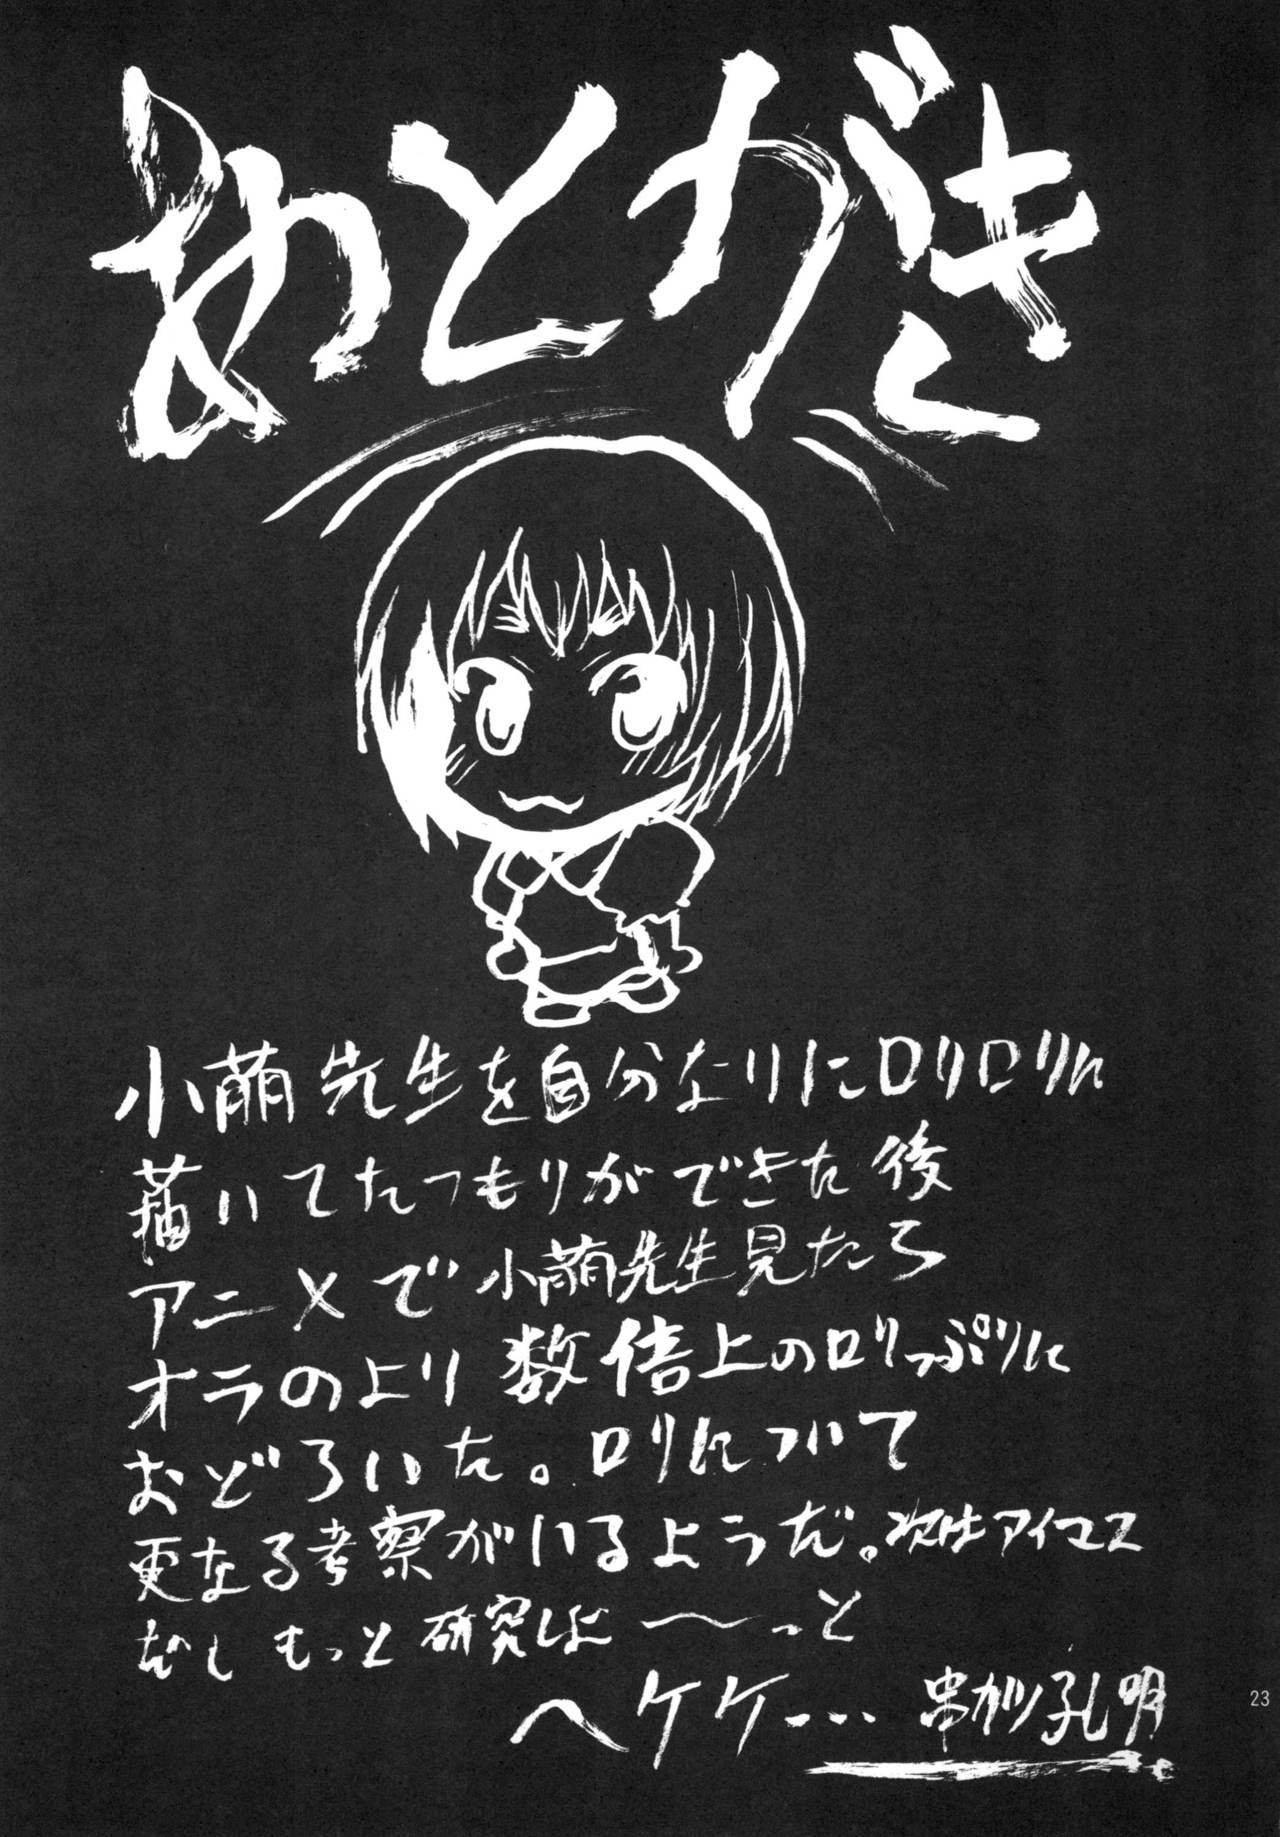 あとがき
小萌先生を自分なりにロリロリに
描いてたつもりができた後
アニメで小萌先生見たら
オラのより数倍上のロリっぷりに
おどろいた。ロリについて
更なる考察がいるようだ。次はアイマス
だし もっと研究しよ〜っと
ヘケケ…
串カツ孔明
23